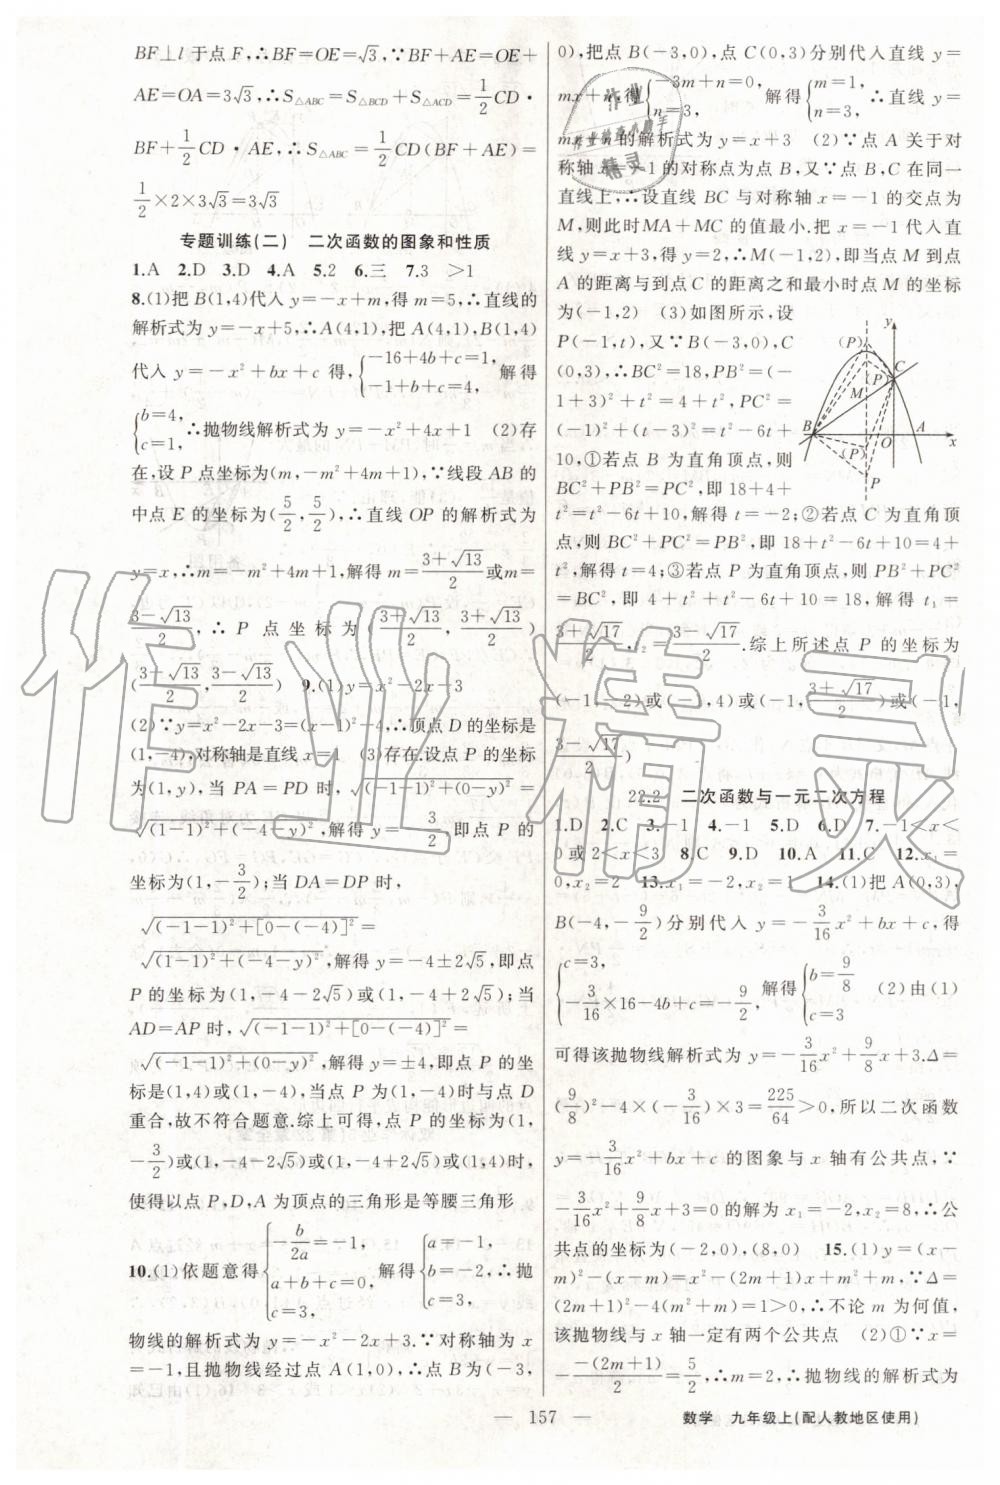 BF⊥l于点F,∴BF=OE=√3,∵BF+AE=OE+
AE=OA=3√3,∴S△ABC=S△BCD+S△ACD=1/2CD·
BF+1/2CD·AE,∴S△ABC=1/2CD(BF+AE)=
1/2×2×3√3=3√3
专题训练(二) 二次函数的图象和性质
1.A 2.D 3.D 4.A 5.2 6.三 7.3 >1
8.(1)把B(1,4)代入y=-x+m,得m=5,∴直线的
解析式为y=-x+5,∴A(4,1),把A(4,1),B(1,4)
代入y=-x²+bx+c得,{-16+4b+c=1, -1+b+c=4, 解得
{b=4, c=1, ∴抛物线解析式为y=-x²+4x+1 (2)存
在,设P点坐标为(m,-m²+4m+1),∵线段AB的
中点E的坐标为(5/2,5/2),∴直线OP的解析式为
y=x,∴m=-m²+4m+1,解得m=(3+√13)/2或m=
(3-√13)/2,∴P点坐标为((3+√13)/2,(3+√13)/2)或
((3-√13)/2,(3-√13)/2) 9.(1)y=x²-2x-3
(2)∵y=x²-2x-3=(x-1)²-4,∴顶点D的坐标是
(1,-4),对称轴是直线x=1 (3)存在.设点P的坐标
为(1,y),当PA=PD时,√((-1-1)²+(0-y)²)=
√((-1-1)²+(-4-y)²),解得y=-3/2,即点P的
坐标为(1,-3/2);当DA=DP时,
√((-1-1)²+[0-(-4)]²)=
√((-1-1)²+(-4-y)²),解得y=-4±2√5,即点
P的坐标为(1,-4-2√5)或(1,-4+2√5);当
AD=AP时,√((-1-1)²+[0-(-4)]²)=
√((-1-1)²+(0-y)²),解得y=±4,即点P的坐
标是(1,4)或(1,-4),当点P为(1,-4)时与点D
重合,故不符合题意.综上可得,点P的坐标为(1,
-3/2)或(1,-4-2√5)或(1,-4+2√5)或(1,4)时,
使得以点P,D,A为顶点的三角形是等腰三角形
10.(1)依题意得{-b/2a=-1, a+b+c=0, c=3, 解得{a=-1, b=-2, c=3, ∴抛
物线的解析式为y=-x²-2x+3.∵对称轴为x
=-1,且抛物线经过点A(1,0),∴点B为(-3,
0),把点B(-3,0),点C(0,3)分别代入直线y=
mx+n,得{-3m+n=0, n=3, 解得{m=1, n=3, ∴直线y=
mx+n的解析式为y=x+3 (2)∵点A关于对
称轴x=-1的对称点为点B,又∵点B,C在同一
直线上,∴设直线BC与对称轴x=-1的交点为
M,则此时MA+MC的值最小.把x=-1代入直
线y=x+3,得y=2,∴M(-1,2),即当点M到点
A的距离与到点C的距离之和最小时点M的坐标
为(-1,2) (3)如图所示,设
P(-1,t),又∵B(-3,0),C
(0,3),∴BC²=18,PB²=(-
1+3)²+t²=4+t²,PC²=
(-1)²+(t-3)²=t²-6t+
10,①若点B为直角顶点,则
BC²+PB²=PC²,即18+4+
t²=t²-6t+10,解得t=-2;②若点C为直角顶
点,则BC²+PC²=PB²,即18+t²-6t+10=4+
t²,解得t=4;③若点P为直角顶点,则PB²+PC²=
BC²,即4+t²+t²-6t+10=18,解得t₁=
(3+√17)/2,t₂=(3-√17)/2.综上所述点P的坐标为
(-1,-2)或(-1,4)或(-1,(3+√17)/2)或(-1,
(3-√17)/2)
y
(P)
C
(P)
M
B
O
x
(P)
P
22.2 二次函数与一元二次方程
1.D 2.C 3.-1 4.-1 5.D 6.D 7.-1<x<
0或2<x<3 8.C 9.D 10.A 11.C 12.x₁=
0,x₂=2 13.x₁=-2,x₂=1 14.(1)把A(0,3),
B(-4,-9/2)分别代入y=-3/16x²+bx+c,得
{c=3, -3/16×16-4b+c=-9/2, 解得{b=9/8 c=3 (2)由(1)
可得该抛物线解析式为y=-3/16x²+9/8x+3.Δ=
(9/8)²-4×(-3/16)×3=225/64>0,所以二次函数
y=-3/16x²+bx+c的图象与x轴有公共点,∵
-3/16x²+9/8x+3=0的解为x₁=-2,x₂=8,∴公
共点的坐标为(-2,0),(8,0) 15.(1)y=(x-
m)²-(x-m)=x²-(2m+1)x+m²+m,∵Δ=
(2m+1)²-4(m²+m)=1>0,∴不论m为何值,
该抛物线与x轴一定有两个公共点 (2)①∵x=
-(-(2m+1))/2=5/2,∴m=2,∴抛物线的解析式为
— 157 — 数学 九年级上(配人教地区使用)
作业精灵